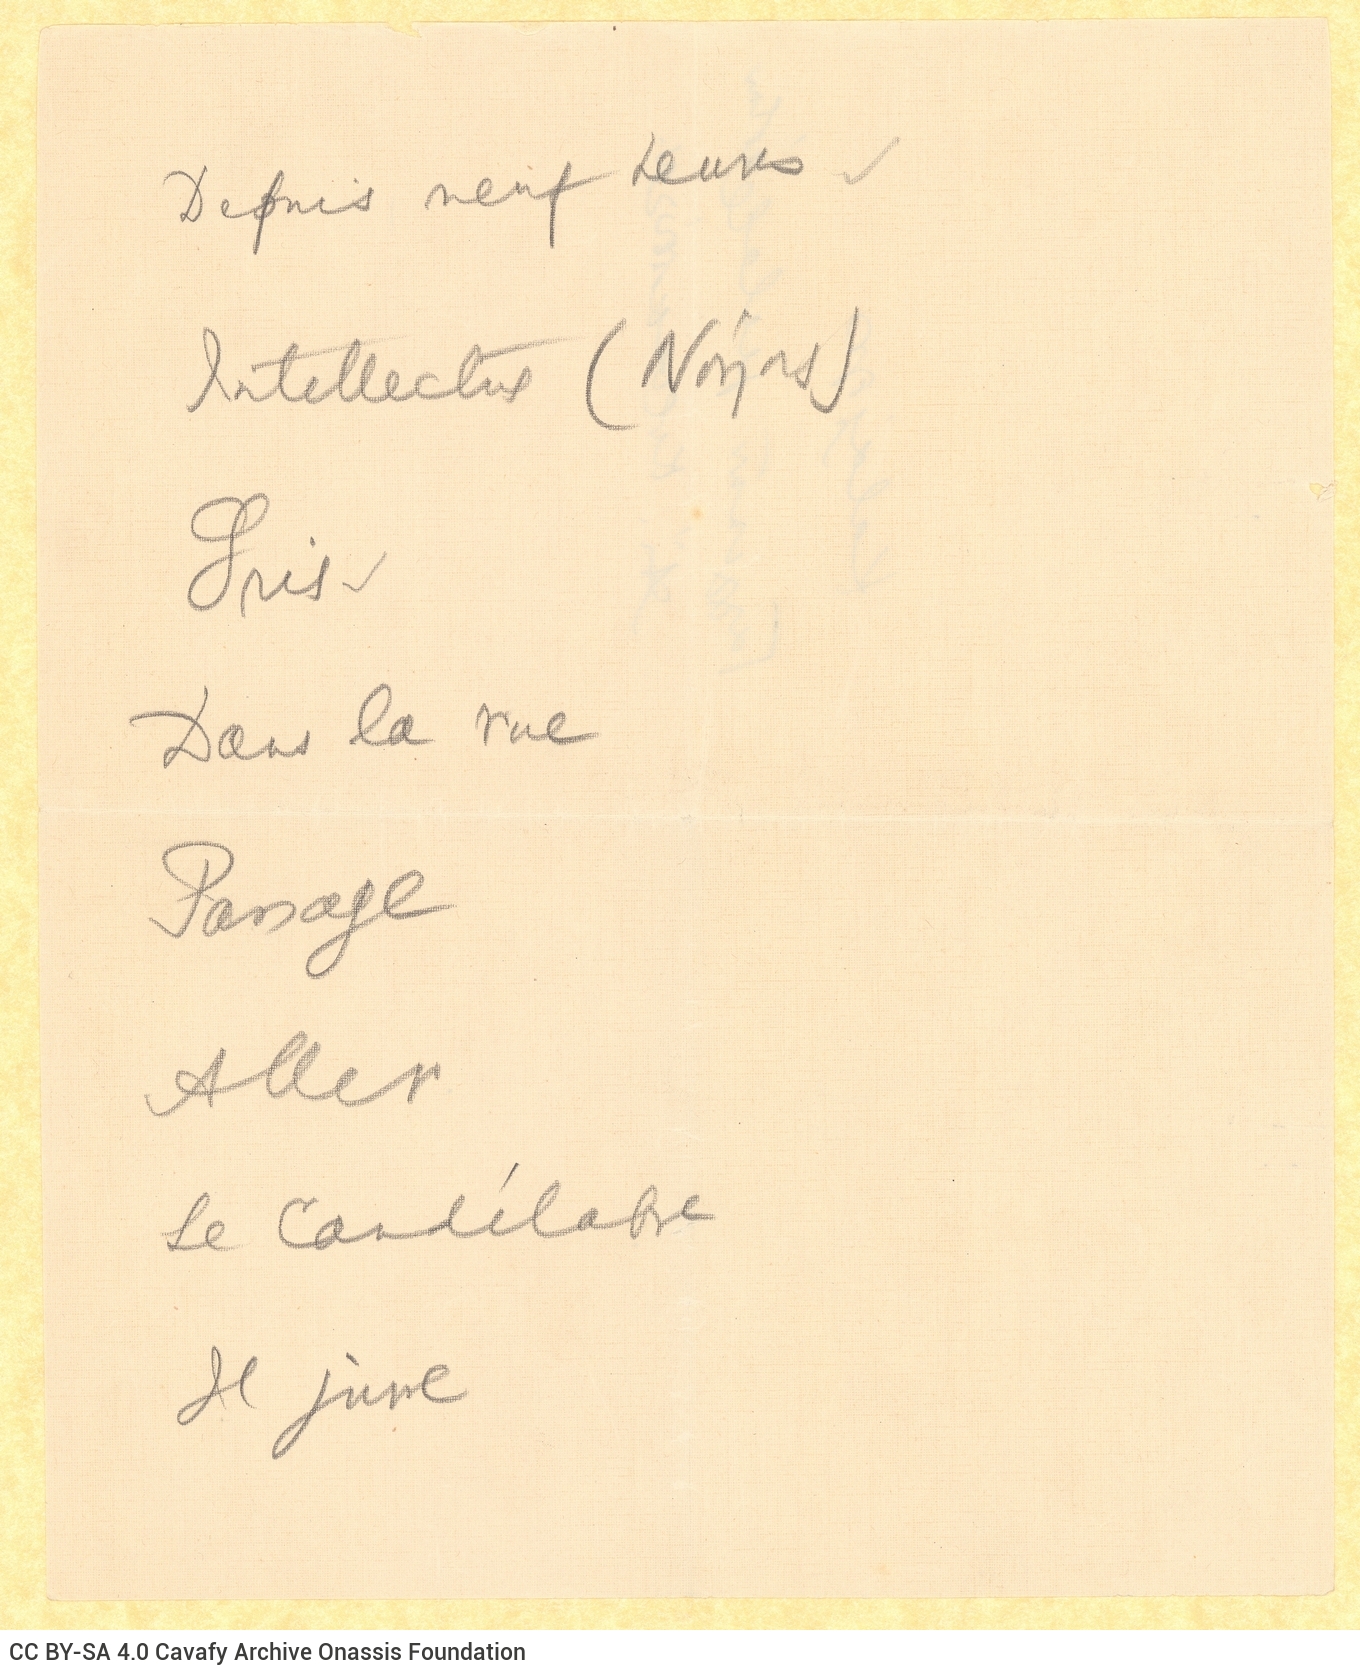 Depuis neuf heures ✓
Intellectus (Νόησις)
Gris ✓
Dans la rue
Passage
Aller
Le Candélabre
Il jure
CC BY-SA 4.0 Cavafy Archive Onassis Foundation